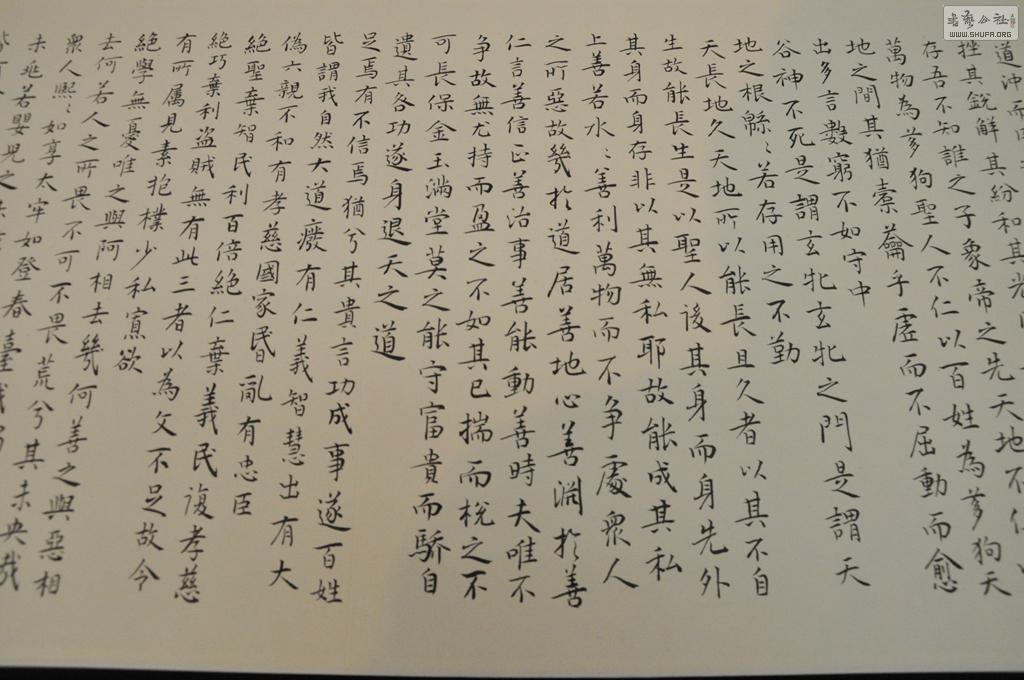 道沖而用
挫其銳解其紛和其光同
存吾不知誰之子象帝之先天地不仁以
萬物為芻狗聖人不仁以百姓為芻狗天
地之間其猶橐籥乎虛而不屈動而愈
出多言數窮不如守中
谷神不死是謂玄牝玄牝之門是謂天
地之根緜〻若存用之不勤
天長地久天地所以能長且久者以其不自
生故能長生是以聖人後其身而身先外
其身而身存非以其無私耶故能成其私
上善若水〻善利萬物而不争處衆人
之所惡故幾於道居善地心善淵於善
仁言善信正善治事善能動善時夫唯不
争故無尤持而盈之不如其已揣而梲之不
可長保金玉滿堂莫之能守富貴而驕自
遺其各功遂身退天之道
足焉有不信焉猶兮其貴言功成事遂百姓
皆謂我自然大道廢有仁義智慧出有大
偽六親不和有孝慈國家昬亂有忠臣
絕聖棄智民利百倍絕仁棄義民復孝慈
絕巧棄利盜賊無有此三者以為文不足故今
有所属見素抱樸少私寡欲
絕學無憂唯之與阿相去幾何善之與惡相
去何若人之所畏不可不畏荒兮其未央哉
衆人熙〻如享太牢如登春臺我
未兆若嬰兒之未
書藝公社
WWW.SHUFA.ORG